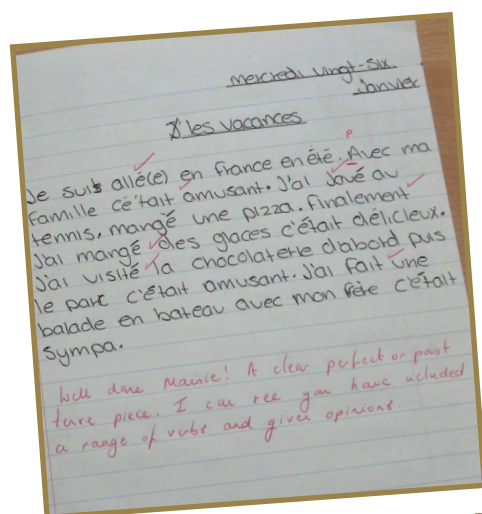 mercredi vingt-six
Janvier
les vacances
P
Je suis allé(e) en france en été. Avec ma
famille c'était amusant. J'ai Joué au
tennis, mangé une pizza. finalement
j'ai mangé des glaces c'était délicieux.
j'ai visité la chocolaterie dabord puis
le parc c'était amusant. J'ai fait une
balade en bateau avec mon c'était
sympa.
Well done ! A clear perfect or past
tense piece. I can see you have included
a range of verbs and given opinions